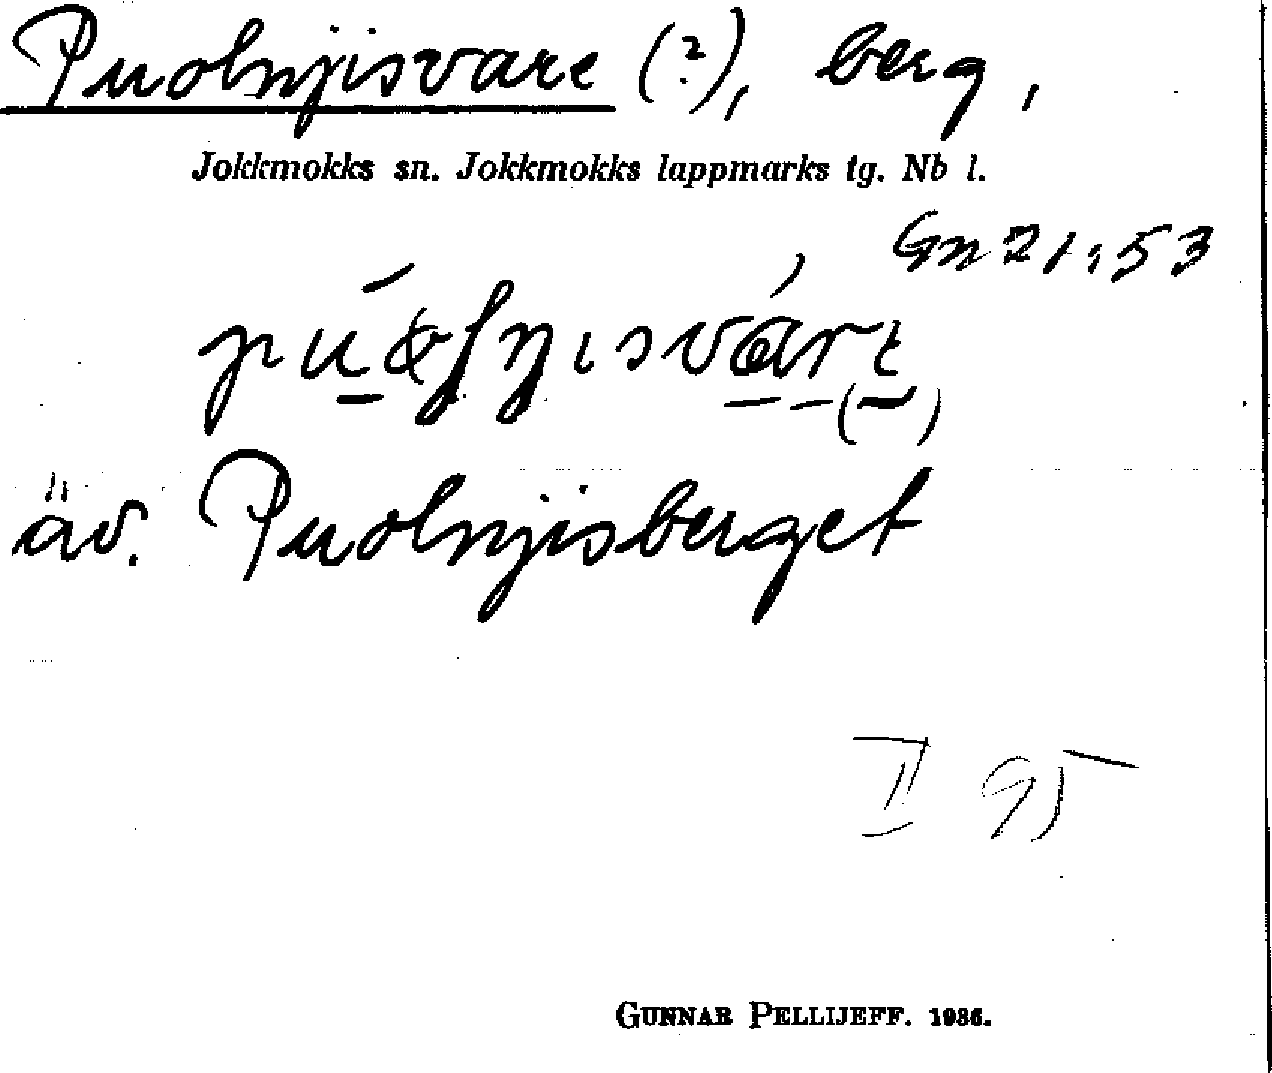 Puolnjisvare (?), berg,
Jokkmokks sn. Jokkmokks lappmarks tg. Nb l.
Gn 21:53
äv. Puolnjisberget
II 95
GUNNAR PELLIJEFF. 1936.